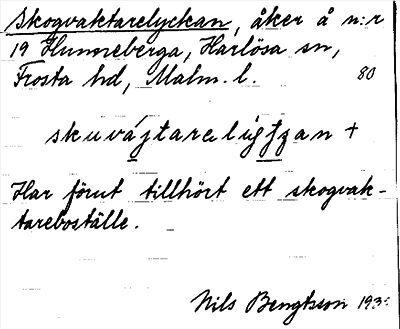 Skogvaktarelyckan, åker å n:r
19 Hunneberga, Harlösa sn,
Frosta hd, Malm. l. 80
skuvájtarelig̲tzan +
Har förut tillhört ett skogvak-
tareboställe.
Nils Bengtsson